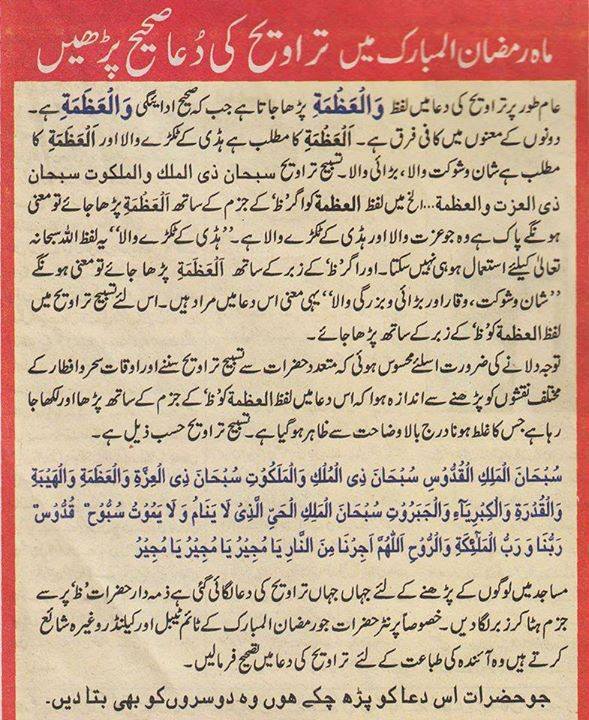 ماہ رمضان المبارک میں تراویح کی دُعا صحیح پڑھیں
عام طور پر تراویح کی دعا میں لفظ وَالْعَظْمَةِ پڑھا جاتا ہے جب کہ صحیح ادائیگی وَالْعَظَمَةِ ہے۔
دونوں کے معنوں میں کافی فرق ہے۔ اَلْعَظْمَةِ کا مطلب ہے ہڈی کے ٹکڑے والا اور اَلْعَظَمَةِ کا
مطلب ہے شان و شوکت والا، بڑائی والا۔ تسبیح تراویح سبحان ذی الملك والملکوت سبحان
ذی العزت والعظمة...الخ میں لفظ العظمة کو اگر 'ظ' کے جزم کے ساتھ اَلْعَظْمَةِ پڑھا جائے تو معنی
ہونگے پاک ہے وہ جو عزت والا اور ہڈی کے ٹکڑے والا ہے۔ ''ہڈی کے ٹکڑے والا'' یہ لفظ اللہ سبحانہ
تعالیٰ کیلئے استعمال ہو ہی نہیں سکتا۔ اور اگر 'ظ' کے زبر کے ساتھ اَلْعَظَمَةِ پڑھا جائے تو معنی ہونگے
''شان و شوکت، وقار اور بڑائی و بزرگی والا'' یہی معنی اس دعا میں مراد ہیں۔ اس لئے تسبیح تراویح میں
لفظ العظمة کو 'ظ' کے زبر کے ساتھ پڑھا جائے۔
توجہ دلانے کی ضرورت اسلئے محسوس ہوئی کہ متعدد حضرات سے تسبیح تراویح سننے اور اوقات سحر و افطار کے
مختلف نقشوں کو پڑھنے سے اندازہ ہوا کہ اس دعا میں لفظ العظمة کو 'ظ' کے جزم کے ساتھ پڑھا اور لکھا جا
رہا ہے جس کا غلط ہونا درج بالا وضاحت سے ظاہر ہو گیا ہے۔ تسبیح تراویح حسب ذیل ہے۔
سُبْحَانَ الْمَلِكِ الْقُدُّوْسِ سُبْحَانَ ذِی الْمُلْكِ وَالْمَلَكُوْتِ سُبْحَانَ ذِی الْعِزَّةِ وَالْعَظَمَةِ وَالْهَيْبَةِ
وَالْقُدْرَةِ وَالْكِبْرِيَآءِ وَالْجَبَرُوْتِ سُبْحَانَ الْمَلِكِ الْحَیِّ الَّذِیْ لَا يَنَامُ وَ لَا يَمُوْتُ سُبُّوْحٌ قُدُّوْسٌ
رَبُّنَا وَ رَبُّ الْمَلٰٓئِكَةِ وَالرُّوْحِ اَللّٰهُمَّ اَجِرْنَا مِنَ النَّارِ يَا مُجِيْرُ يَا مُجِيْرُ يَا مُجِيْرُ
مساجد میں لوگوں کے پڑھنے کے لئے جہاں جہاں تراویح کی دعا لگائی گئی ہے ذمہ دار حضرات 'ظ' پر سے
جزم ہٹا کر زبر لگا دیں۔ خصوصاً پرنٹر حضرات جو رمضان المبارک کے ٹائم ٹیبل اور کیلنڈر وغیرہ شائع
کرتے ہیں وہ آئندہ کی طباعت کے لئے تراویح کی دعا میں تصحیح فرما لیں۔
جو حضرات اس دعا کو پڑھ چکے ھوں وہ دوسروں کو بھی بتا دیں۔